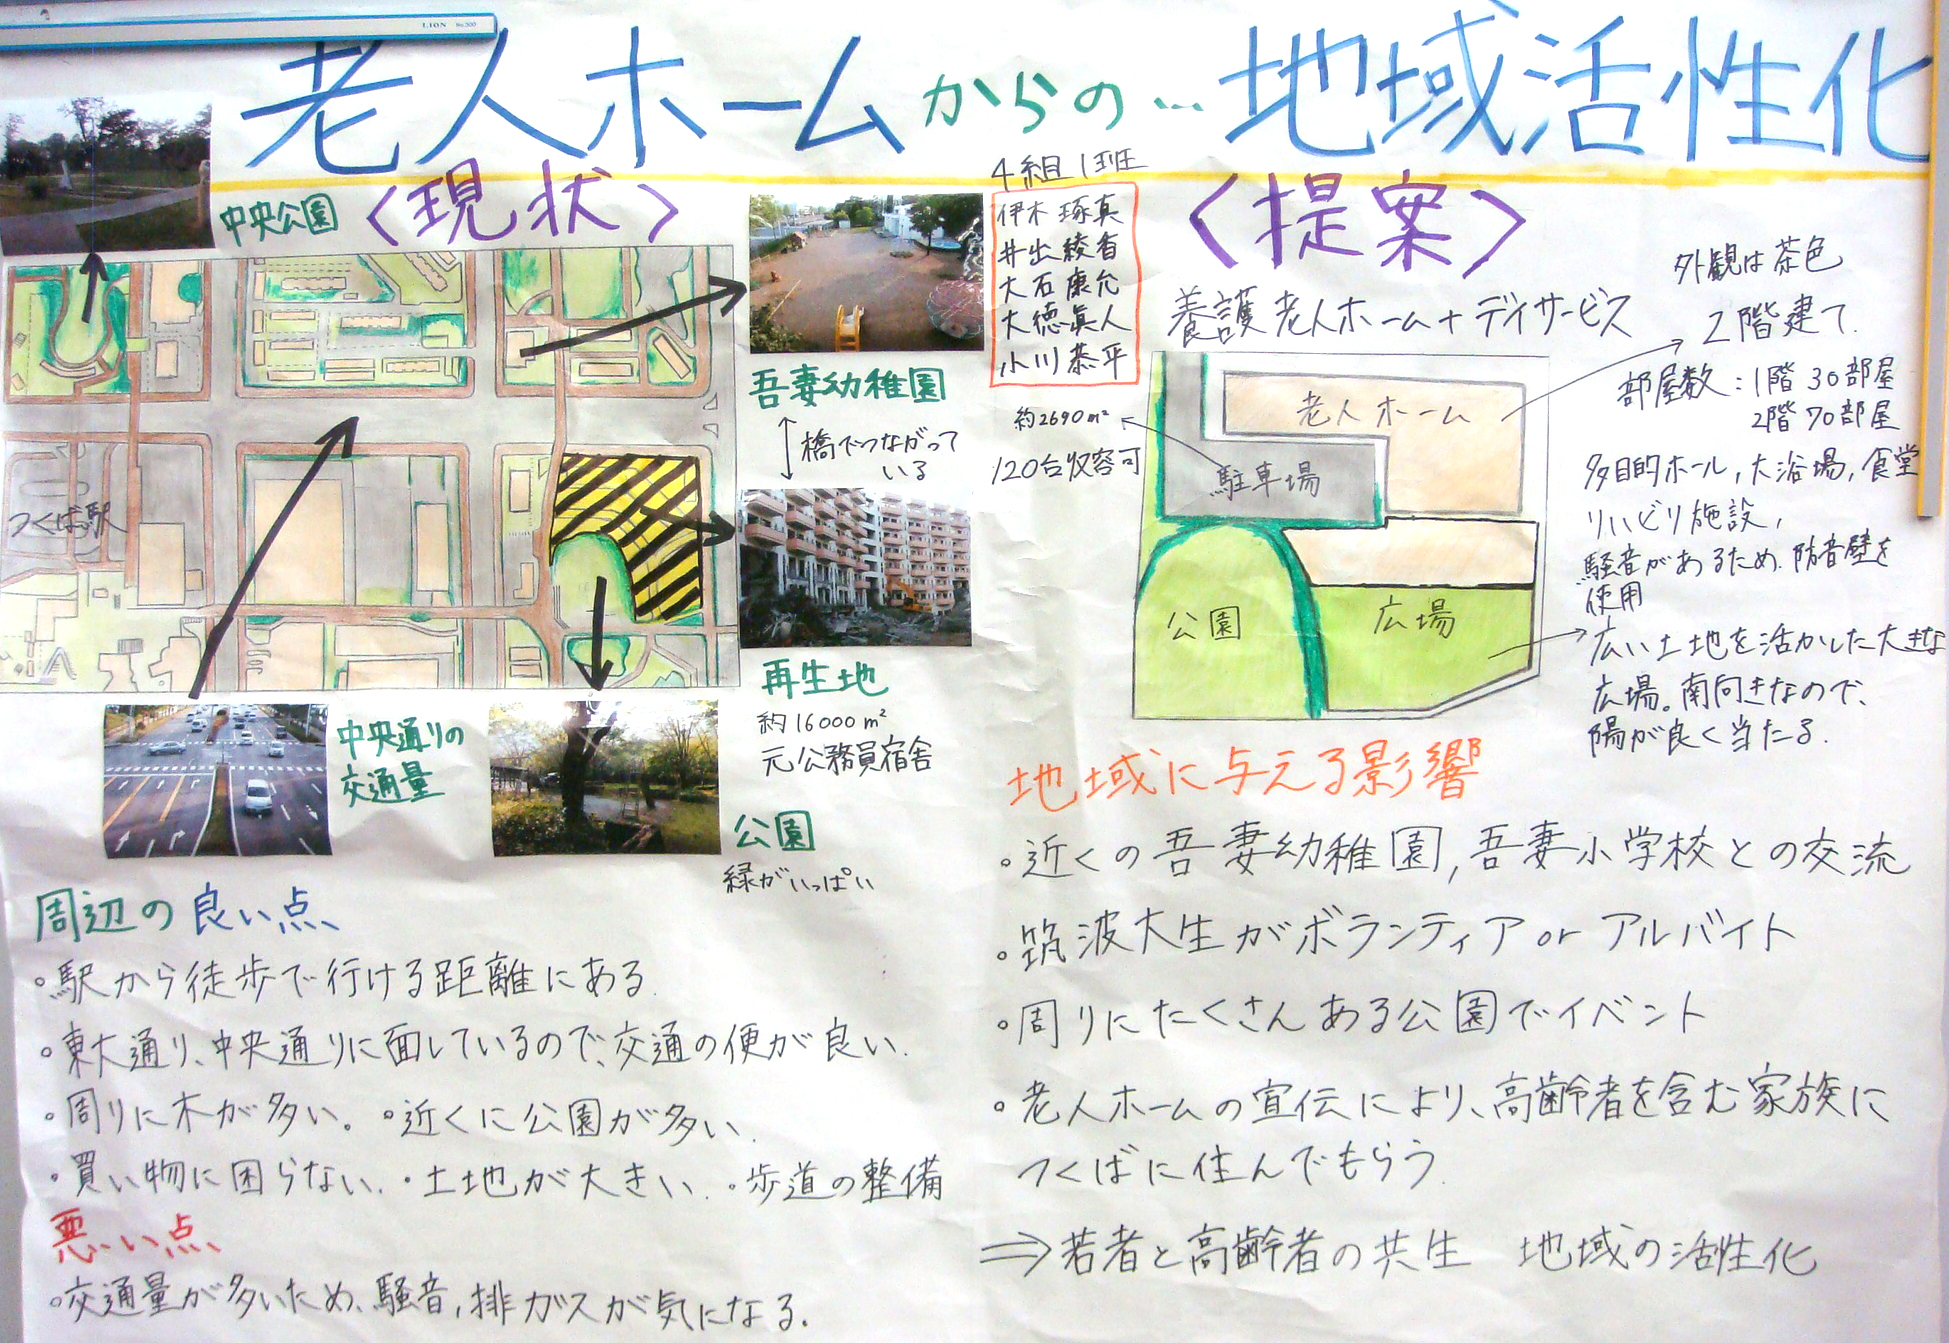 LION No.300
老人ホームからの…地域活性化
4組1班
伊木 琢真
井出 綾香
大石 康允
大徳 眞人
小川 恭平
〈現状〉
中央公園
吾妻幼稚園
橋でつながって
いる
つくば駅
再生地
約16000m²
元公務員宿舎
中央通りの
交通量
公園
緑がいっぱい
周辺の良い点
・駅から徒歩で行ける距離にある.
・東大通り、中央通りに面しているので、交通の便が良い.
・周りに木が多い。・近くに公園が多い.
・買い物に困らない.・土地が大きい.・歩道の整備
悪い点
・交通量が多いため、騒音,排ガスが気になる.
〈提案〉
養護老人ホーム+デイサービス
外観は茶色
2階建て.
部屋数:1階 30部屋
2階 70部屋
多目的ホール,大浴場,食堂
りハビリ施設,
騒音があるため.防音壁を
使用
広い土地を活かした大きな
広場。南向きなので、
陽が良く当たる.
約2690m²
120台収容可
老人ホーム
駐車場
公園
広場
地域に与える影響
・近くの吾妻幼稚園,吾妻小学校との交流
・筑波大生がボランティア or アルバイト
・周りにたくさんある公園でイベント
・老人ホームの宣伝により、高齢者を含む家族に
つくばに住んでもらう.
⇒若者と高齢者の共生 地域の活性化